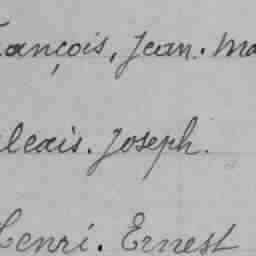 rançois, Jean. Ma
lexis. Joseph.
Henri. Ernest